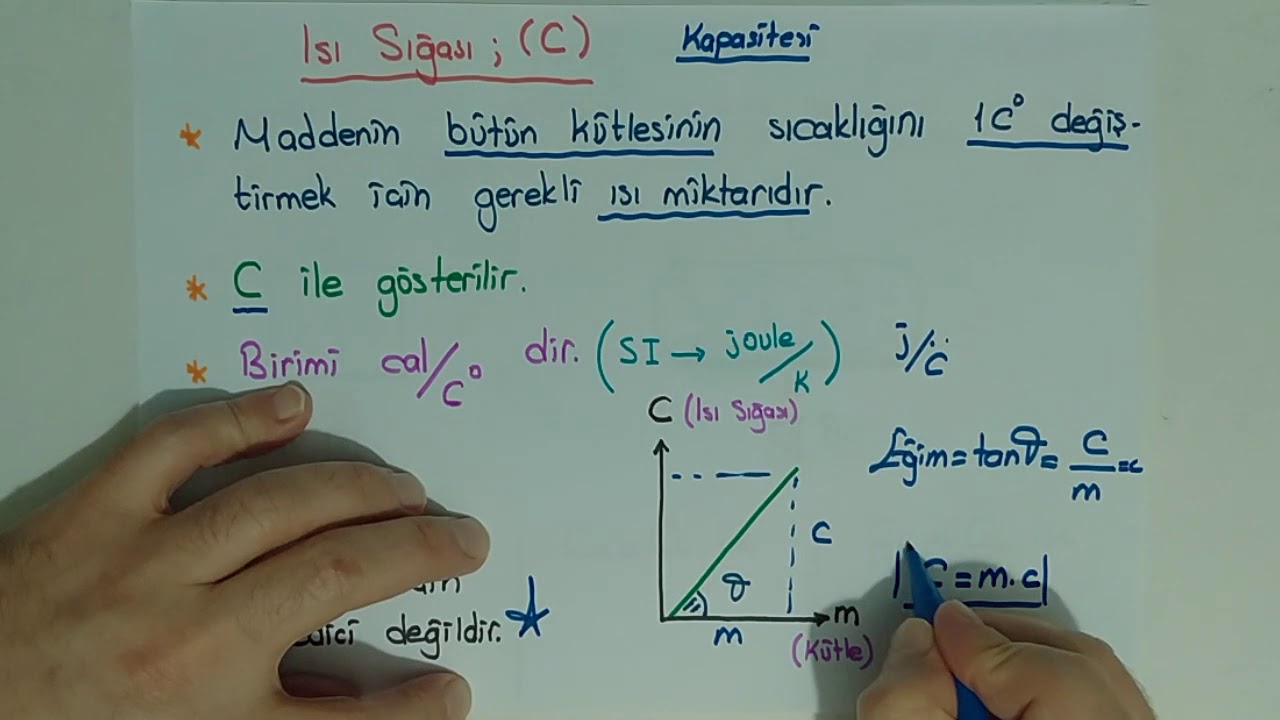 Isı Sığası ; (C) Kapasitesi
* Maddenin bütün kütlesinin sıcaklığını 1C° değiş-
tirmek için gerekli ısı miktarıdır.
* C ile gösterilir.
* Birimi cal/C° dir. (SI → joule/K) j/C°
C (Isı Sığası)
Eğim = tanθ = C/m = c
C
θ
C = m.c
değildir.
m
m
(Kütle)